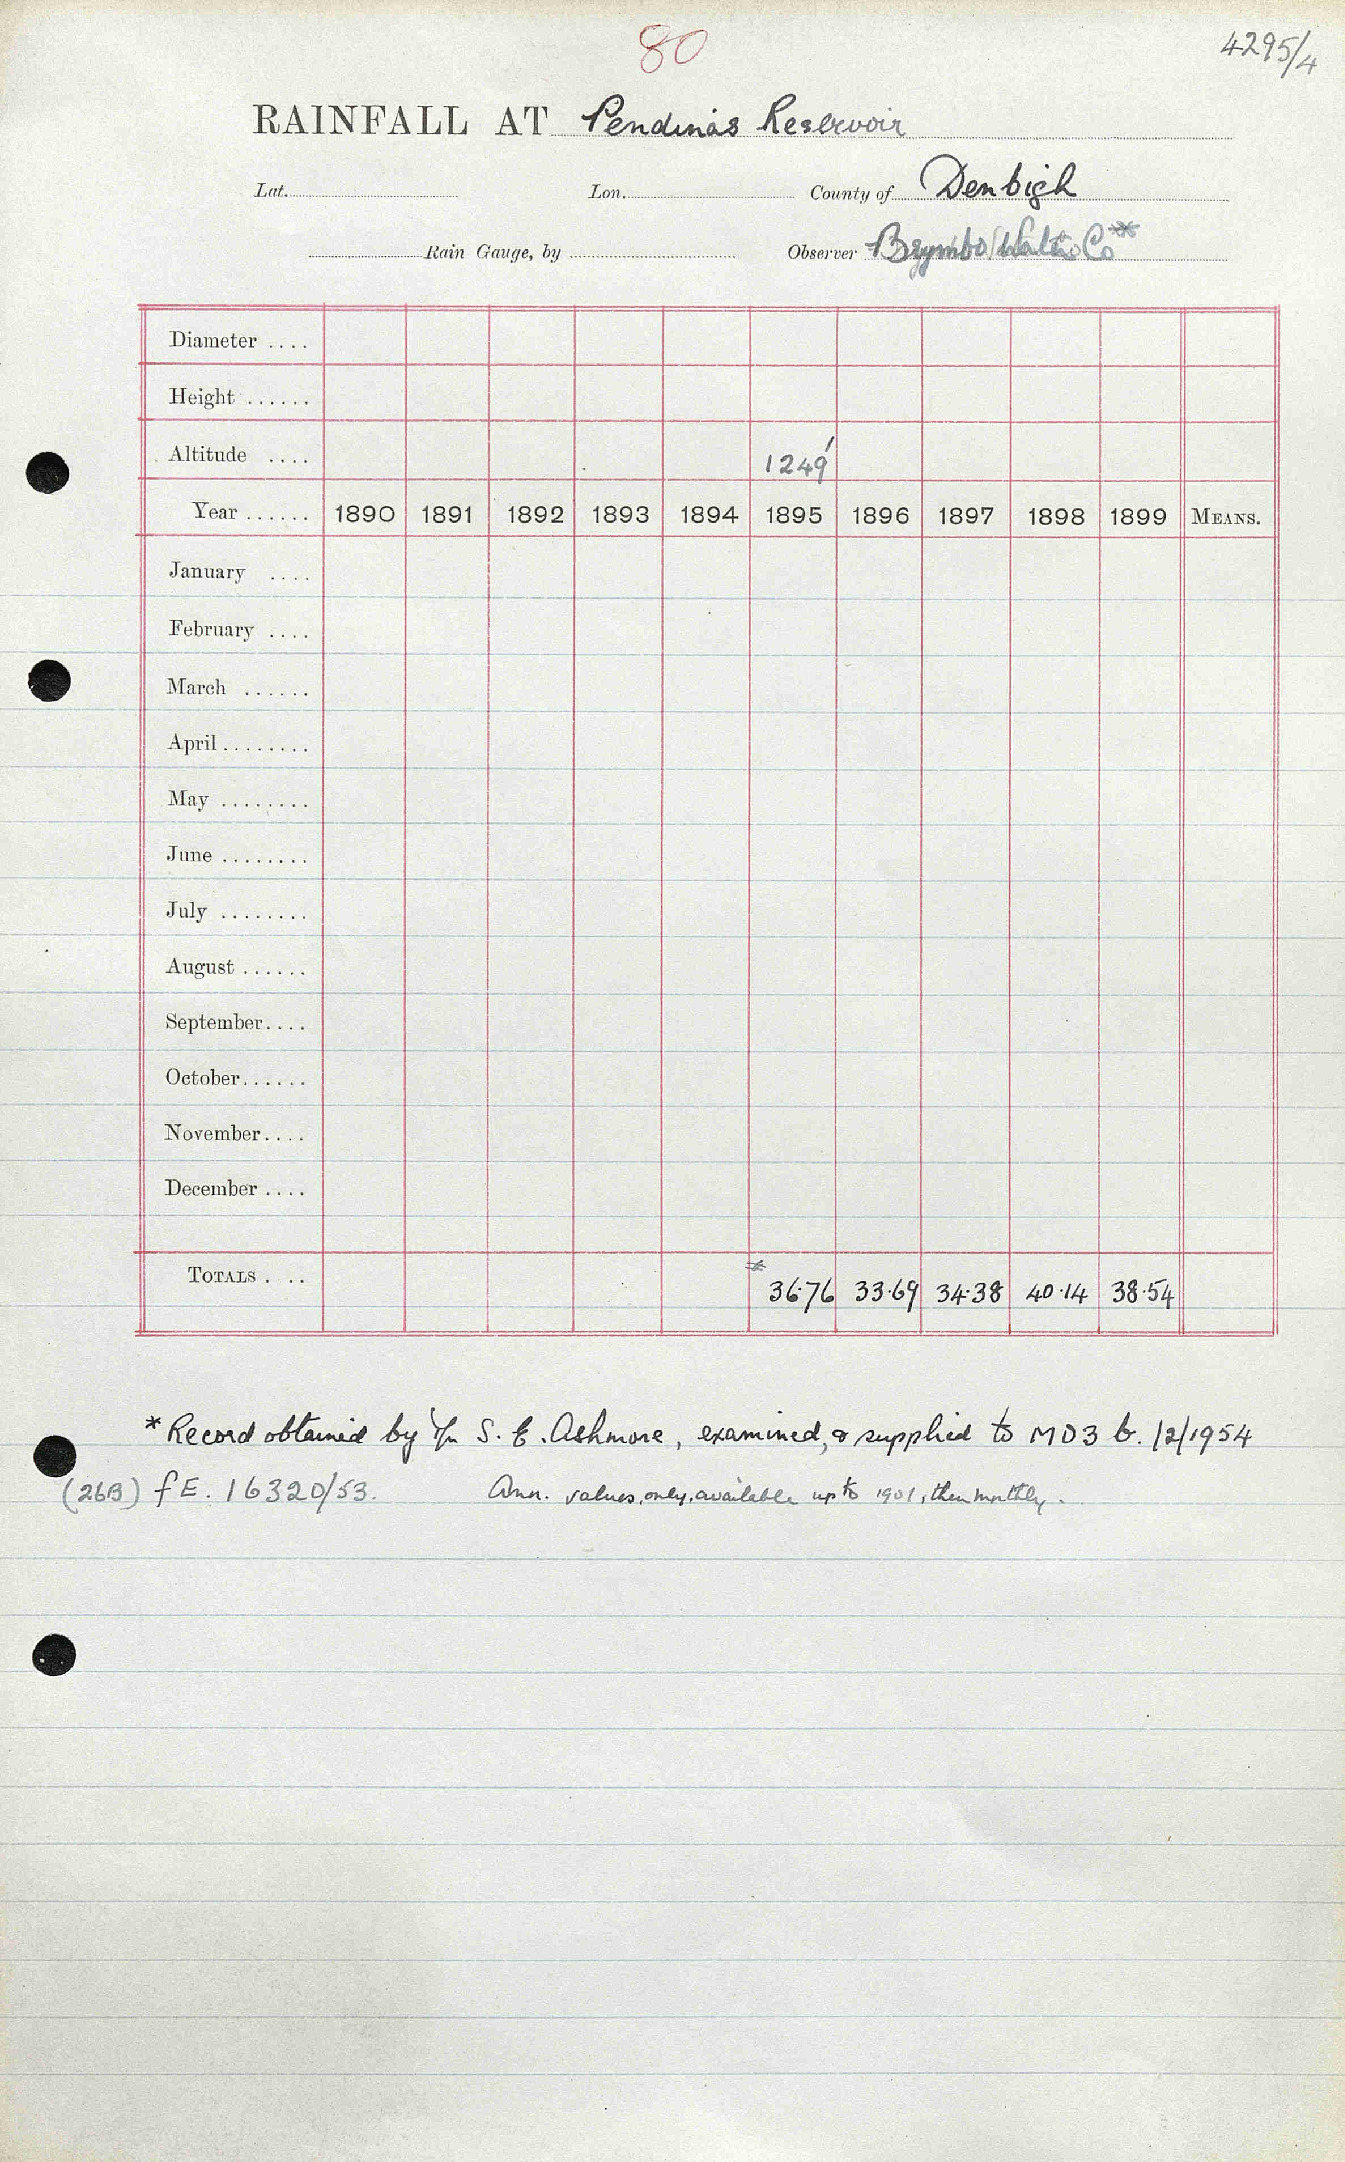 80
4295/4
RAINFALL AT Pendinas Reservoir
Lat. Lon. County of Denbigh
Rain Gauge, by Observer Brymbo Water Co *
Diameter ....
Height ......
Altitude .... 1249'
Year ...... 1890 1891 1892 1893 1894 1895 1896 1897 1898 1899 MEANS.
January ....
February ....
March ......
April ........
May ........
June ........
July ........
August ......
September....
October......
November....
December ....
TOTALS . .. * 36.76 33.69 34.38 40.14 38.54
* Record obtained by Mr S. E. Ashmore, examined, & supplied to MD3 b. /2/1954
(26B) f E. 16320/53. Ann. values, only, available up to 1901, then monthly.